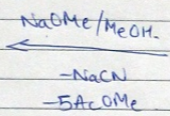 NaOMe/MeOH.
-NaCN
-5AcOMe